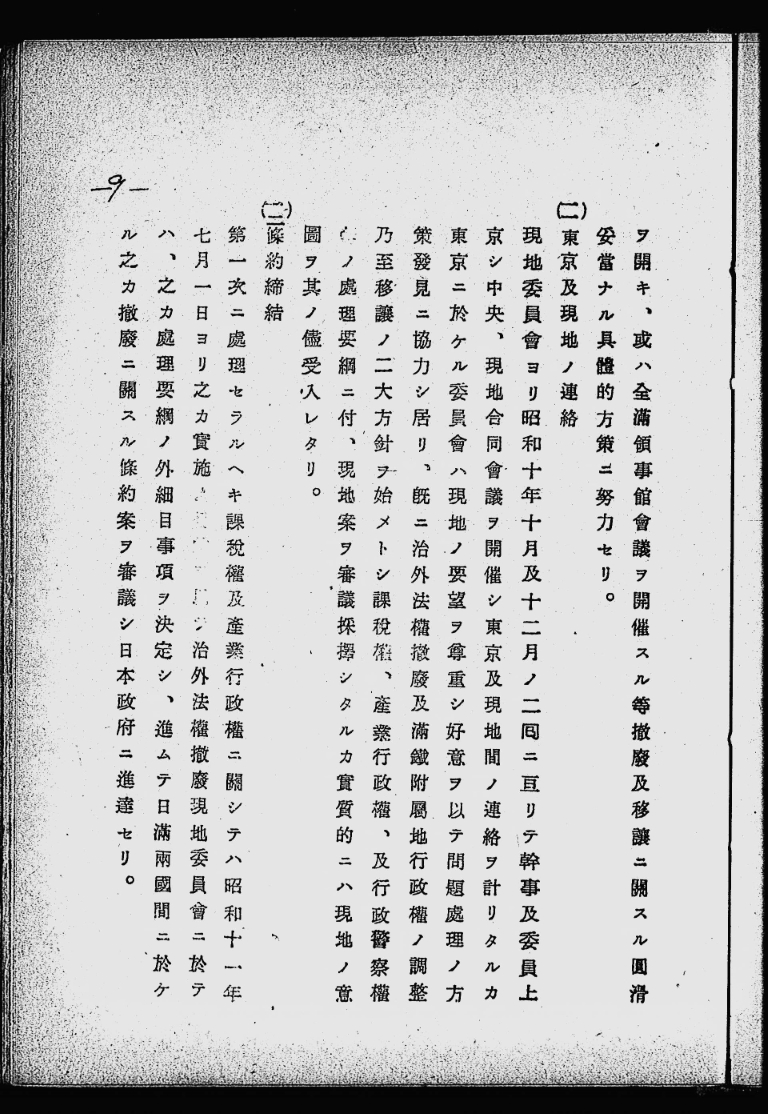 ヲ開キ、或ハ全滿領事館會議ヲ開催スル等撤廢及移讓ニ關スル圓滑
妥當ナル具體的方策ニ努力セリ。
(二)東京及現地ノ連絡
現地委員會ヨリ昭和十年十月及十二月ノ二囘ニ亘リテ幹事及委員上
京シ中央、現地合同會議ヲ開催シ東京及現地間ノ連絡ヲ計リタルカ
東京ニ於ケル委員會ハ現地ノ要望ヲ尊重シ好意ヲ以テ問題處理ノ方
策發見ニ協力シ居リ、旣ニ治外法權撤廢及滿鐵附屬地行政權ノ調整
乃至移讓ノ二大方針ヲ始メトシ課稅權、產業行政權、及行政警察權
ノ處理要綱ニ付、現地案ヲ審議採擇シタルカ實質的ニハ現地ノ意
圖ヲ其ノ儘受入レタリ。
(三)條約締結
第一次ニ處理セラルヘキ課稅權及產業行政權ニ關シテハ昭和十一年
七月一日ヨリ之カ實施 治外法權撤廢現地委員會ニ於テ
ハ、之カ處理要綱ノ外細目事項ヲ決定シ、進ムテ日滿兩國間ニ於ケ
ル之カ撤廢ニ關スル條約案ヲ審議シ日本政府ニ進達セリ。
—9—